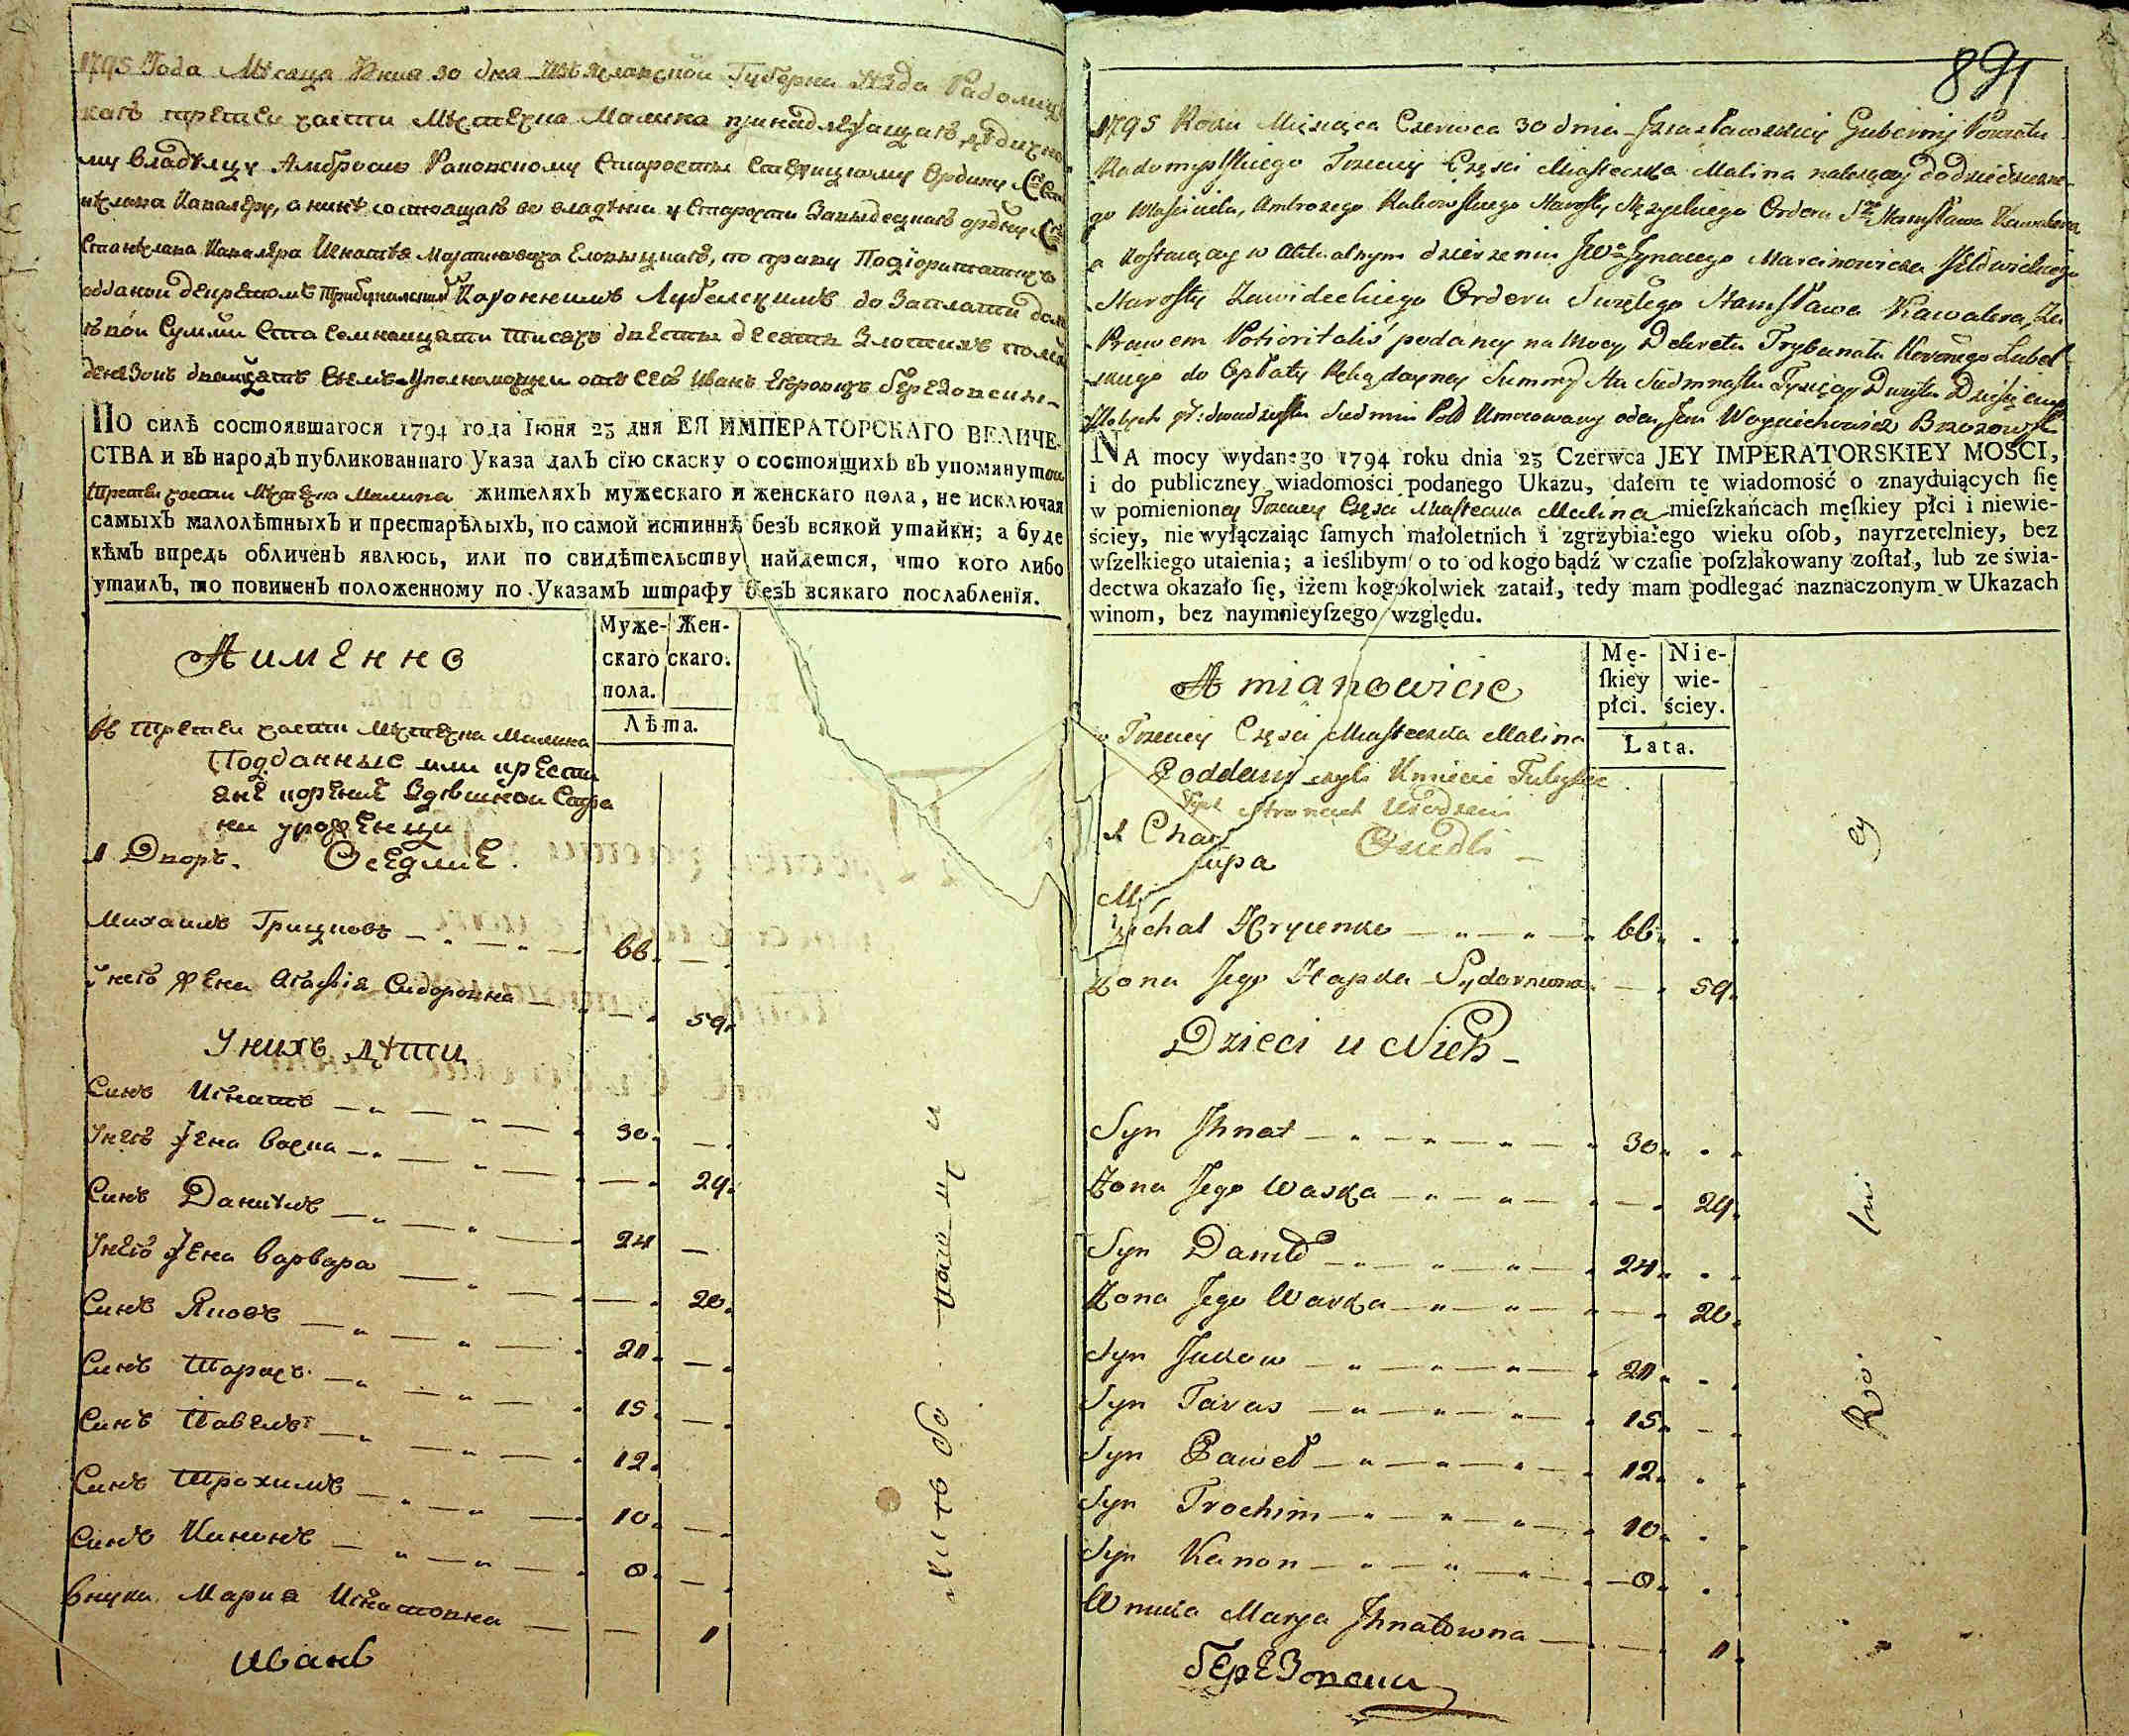 1795 Года Мѣсяца Юния 30 дня Изяславской Губернии Уѣзда Радомис
третей части Мѣстечка Малина принадлежащаго
му владѣлцу Амбросию Старосты ордину
Кавалеру, а нинѣ состоящаго во владѣнии у Старости ордину
Станислава Кавалера Игнатия Мартиновича по праву
Короннимъ Лубелскимъ до Заплати
Сумми Ста Семнацяти Тисячъ двести десять Злотихъ
двацять Иванъ Березовский
ПО силѣ состоявшагося 1794 года Іюня 23 дня ЕЯ ИМПЕРАТОРСКАГО ВЕЛИЧЕ-
СТВА и въ народъ публикованнаго Указа далъ сїю скаску о состоящихъ въ упомянутой
третей части Мѣстечка Малина жителяхъ мужескаго и женскаго пола, не исключая
самыхъ малолѣтныхъ и престарѣлыхъ, по самой истиннѣ безъ всякой утайки; а буде
кѣмъ впредь обличенъ явлюсь, или по свидѣтельству найдется, что кого либо
утаилъ, то повиненъ положенному по Указамъ штрафу безъ всякаго послабленїя.
Муже- Жен-
скаго скаго.
пола.
Лѣта.
А имЕнно
въ третеи части Мѣстечка Малина
Подданные или крести
ане
уроженци
1 Дворъ. ОсЕдлиЕ.
Михаилъ Грицковъ 66.
У него жЕна Агафія Сидоровна 59.
У нихъ дѣти
Синъ Игнатъ 30.
У нЕго жЕна Васка 29.
Синъ Данилъ 24
У нЕго жЕна Варвара 20.
Синъ Яковъ 21.
Синъ Тарасъ 15.
Синъ Павелъ 12.
Синъ Трохимъ 10.
Синъ Кинонъ 8.
Внука Мария Игнатовна 1
Иванъ
891
1795 Roku Miesiąca Czerwca 30 dnia Izasławskiey Gubernij Powiatu
Radomyslskiego Trzeciey Części Miasteczka Malina należącey do dziedziczne-
go Właściciela, Ambrożego Starosty Orderu Sgo Stanisława Kawalera
a zostaiącey w aktualnym dzierżeniu JWo Ignacego Marcinowicza
Starosty Zawideckiego Orderu Swiętego Stanisława Kawalera, Za
Prawem Potioritatis podaney na Mocy Dekretu Trybunału Koronnego Lubel
skiego do Opłaty Summy Sta Siedmnastu Tysięcy Dwustu Dziesięciu
Złotych gr: dwudziestu Siedmiu Jan Woyciechowicz Brzozowski
NA mocy wydanego 1794 roku dnia 23 Czerwca JEY IMPERATORSKIEY MOŚCI,
i do publiczney wiadomości podanego Ukazu, dałem tę wiadomość o znayduiących ſię
w pomienioney Trzeciey Części Miasteczka Malina mieſzkańcach męſkiey płci i niewie-
ściey, nie wyłączaiąc ſamych małoletnich i zgrzybiałego wieku oſob, nayrzetelniey, bez
wſzelkiego utaienia; a ieślibym o to od kogo bądź w czaſie poſzlakowany zoſtał, lub ze świa-
dectwa okazało ſię, iżem kogokolwiek zataił, tedy mam podlegać naznaczonym w Ukazach
winom, bez naymnieyſzego względu.
Mę- Nie-
ſkiey wie-
płci. ściey.
Lata.
A mianowicie
w Trzeciey Części Miasteczka Malina
Poddani czyli Kmiecie
Stronach Urodzeni
1 Chałupa Osiedli
Michał Hrycenko 66.
Żona Jego Hapka Sydorowna 59.
Dzieci u Nich
Syn Ihnat 30.
Żona Jego Waska 29.
Syn Daniło 24.
Żona Jego Warka 20.
Syn Jakow 21.
Syn Taras 15.
Syn Paweł 12.
Syn Trochim 10.
Syn Kanon 8.
Wnuka Marya Ihnatowna 1.
БЕрЕЗовски